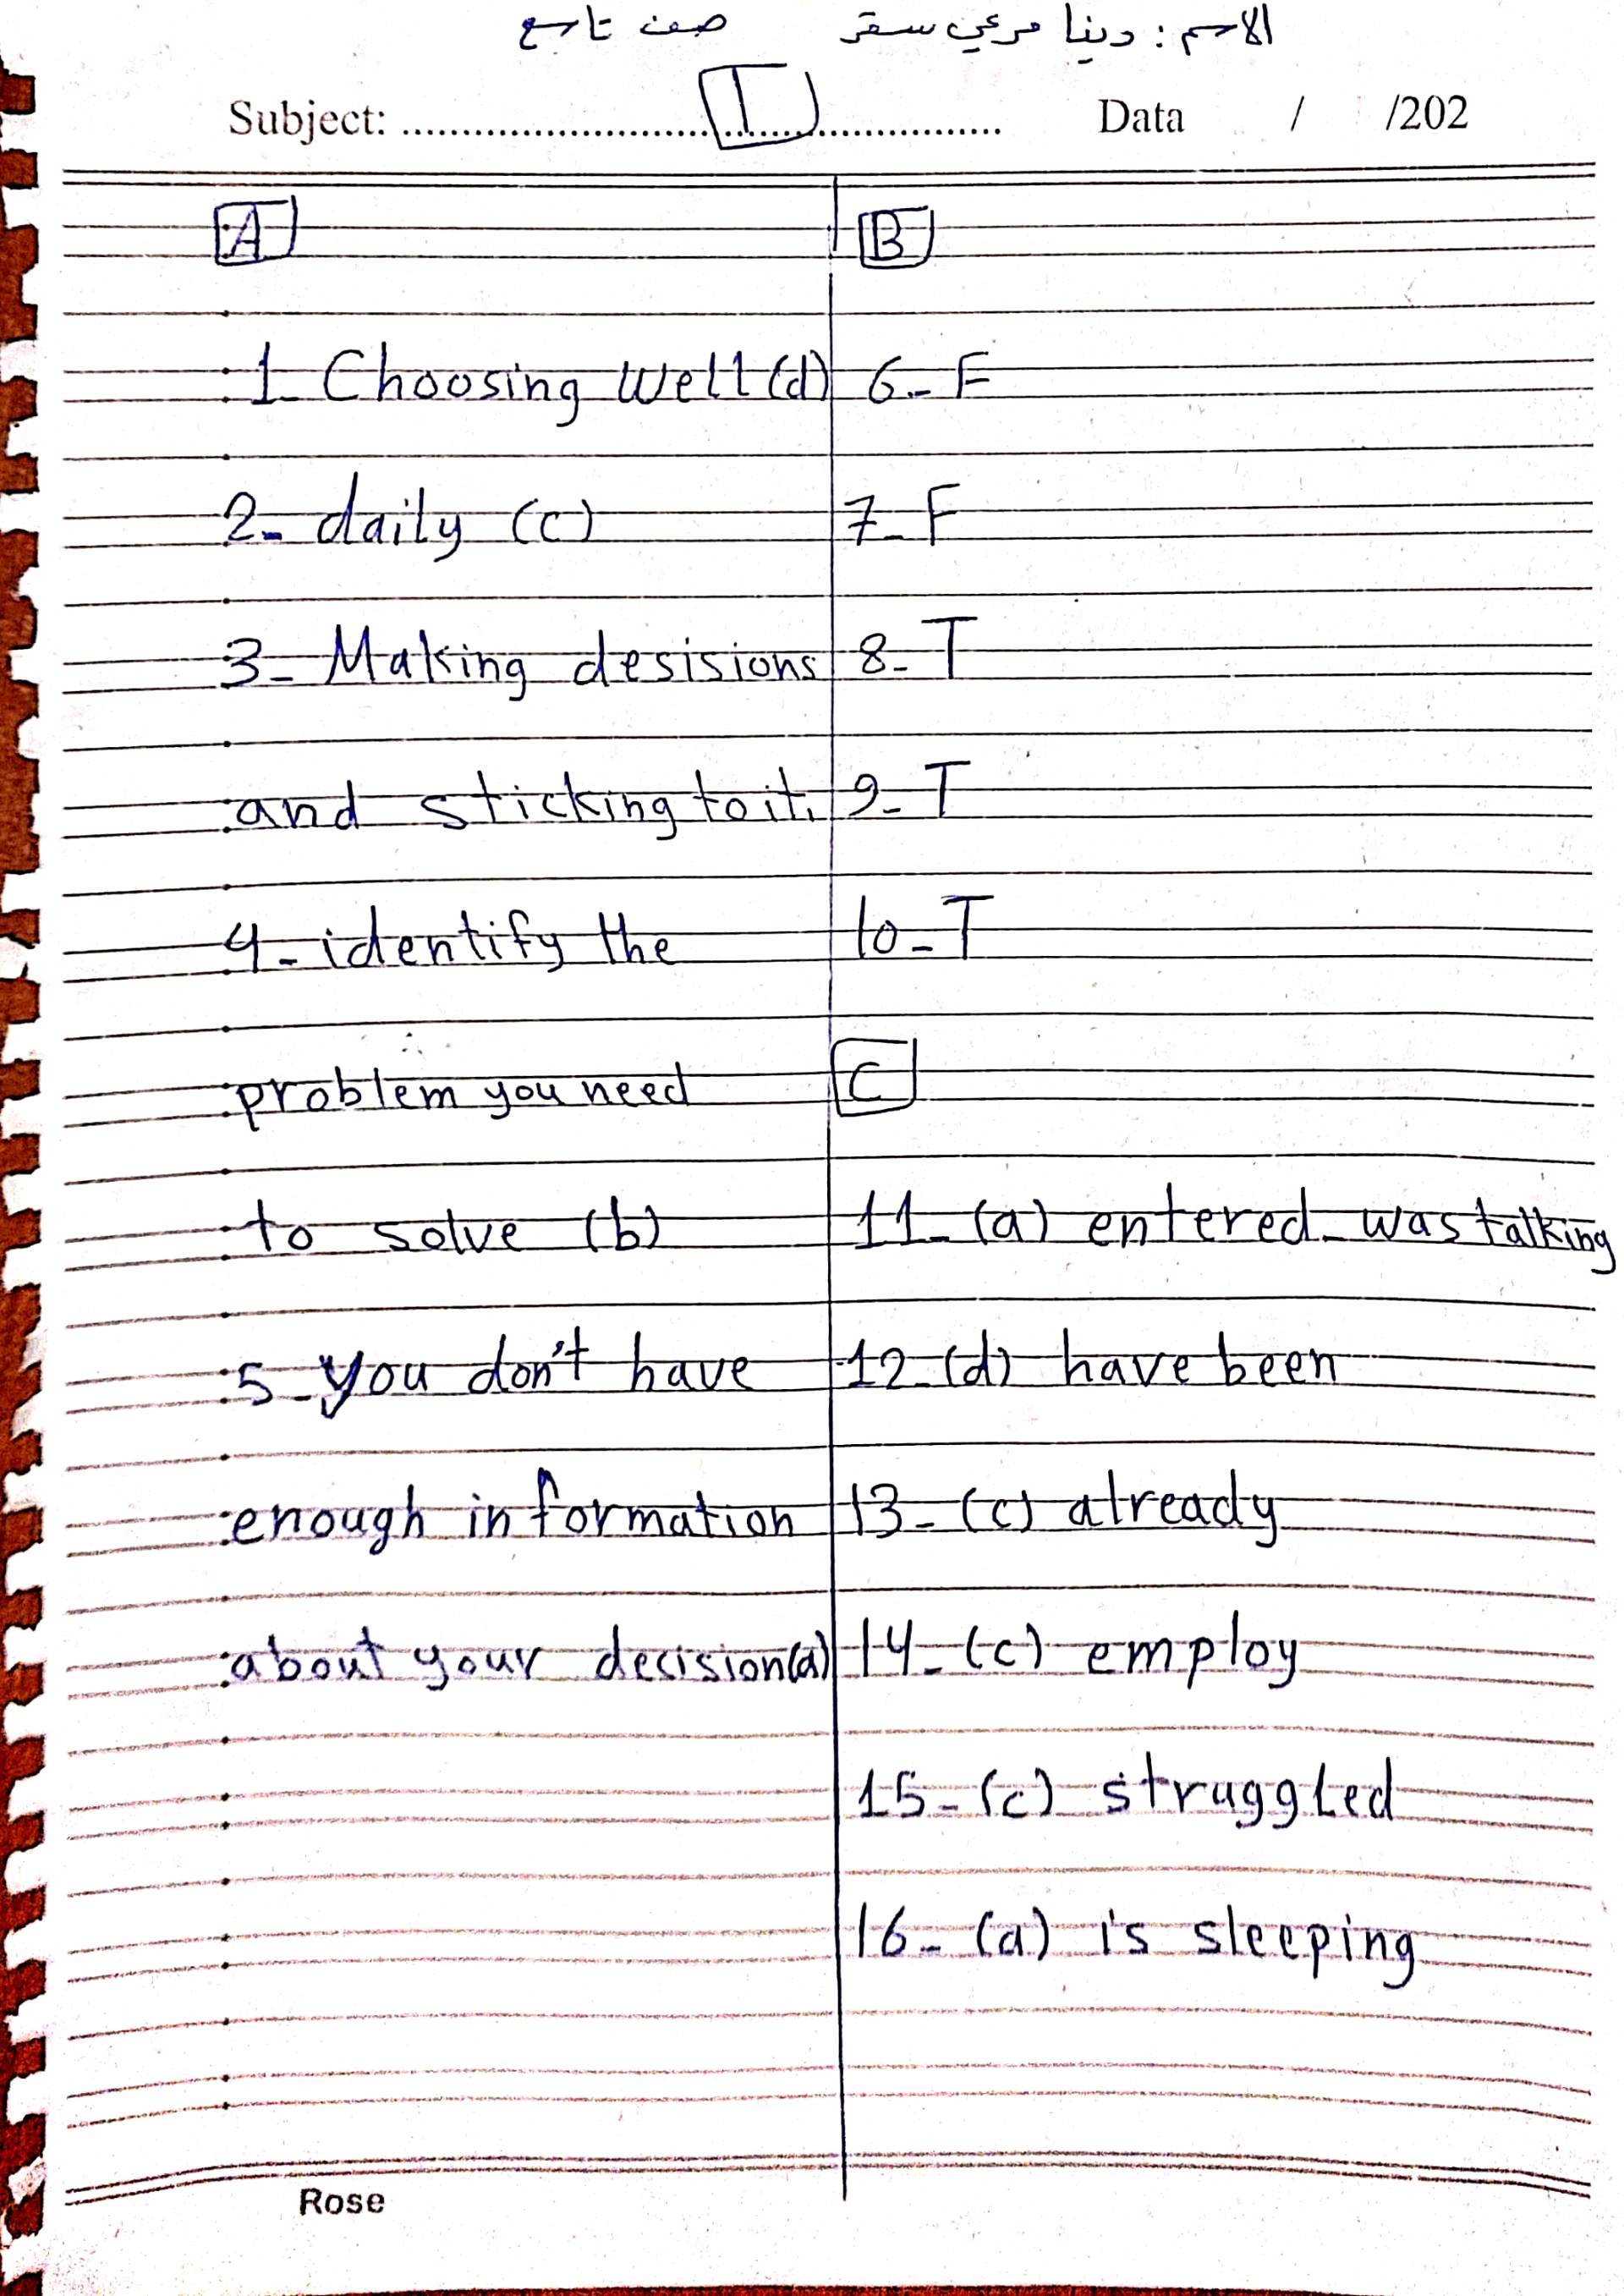 الاسم : دينا مرعي سقر صف تاسع
I
Subject: ........................................ Data / /202
A
1- Choosing well (d)
2- daily (c)
3- Making desisions
and sticking to it.
4- identify the
problem you need
to solve (b)
5- you don't have
enough information
about your decision(a)
B
6- F
7- F
8- T
9- T
10- T
C
11- (a) entered - was talking
12- (d) have been
13- (c) already
14- (c) employ
15- (c) struggled
16- (a) is sleeping
Rose